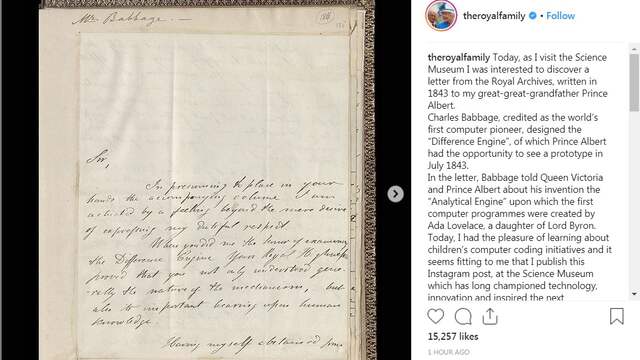 Mr. Babbage. —
Sir,
In presuming to place in your
hands the accompanying volume I am
actuated by a feeling beyond the mere desire
of expressing my dutiful respect
When you did me the honor of examining
the Difference Engine Your Royal Highness
proved that you not only understood gene-
rally the nature of the mechanism, but
also its important bearing upon human
knowledge.
Having myself obtained from
theroyalfamily • Follow
theroyalfamily Today, as I visit the Science
Museum I was interested to discover a
letter from the Royal Archives, written in
1843 to my great-great-grandfather Prince
Albert.
Charles Babbage, credited as the world's
first computer pioneer, designed the
“Difference Engine”, of which Prince Albert
had the opportunity to see a prototype in
July 1843.
In the letter, Babbage told Queen Victoria
and Prince Albert about his invention the
“Analytical Engine” upon which the first
computer programmes were created by
Ada Lovelace, a daughter of Lord Byron.
Today, I had the pleasure of learning about
children's computer coding initiatives and it
seems fitting to me that I publish this
Instagram post, at the Science Museum
which has long championed technology,
innovation and inspired the next
15,257 likes
1 HOUR AGO